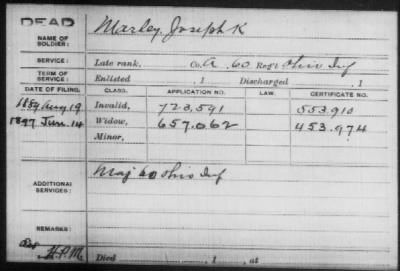 DEAD
NAME OF SOLDIER: Marley, Joseph K
SERVICE: Late rank, Co. A, 60 Reg't Ohio Inf
TERM OF SERVICE: Enlisted , 1 Discharged , 1
DATE OF FILING. CLASS. APPLICATION NO. LAW. CERTIFICATE NO.
1889 Aug 19 Invalid, 723,591 553.910
1897 Jun. 14 Widow, 657.062 453.974
Minor,
ADDITIONAL SERVICES: Maj 60 Ohio Inf
REMARKS:
Died , 1 , at